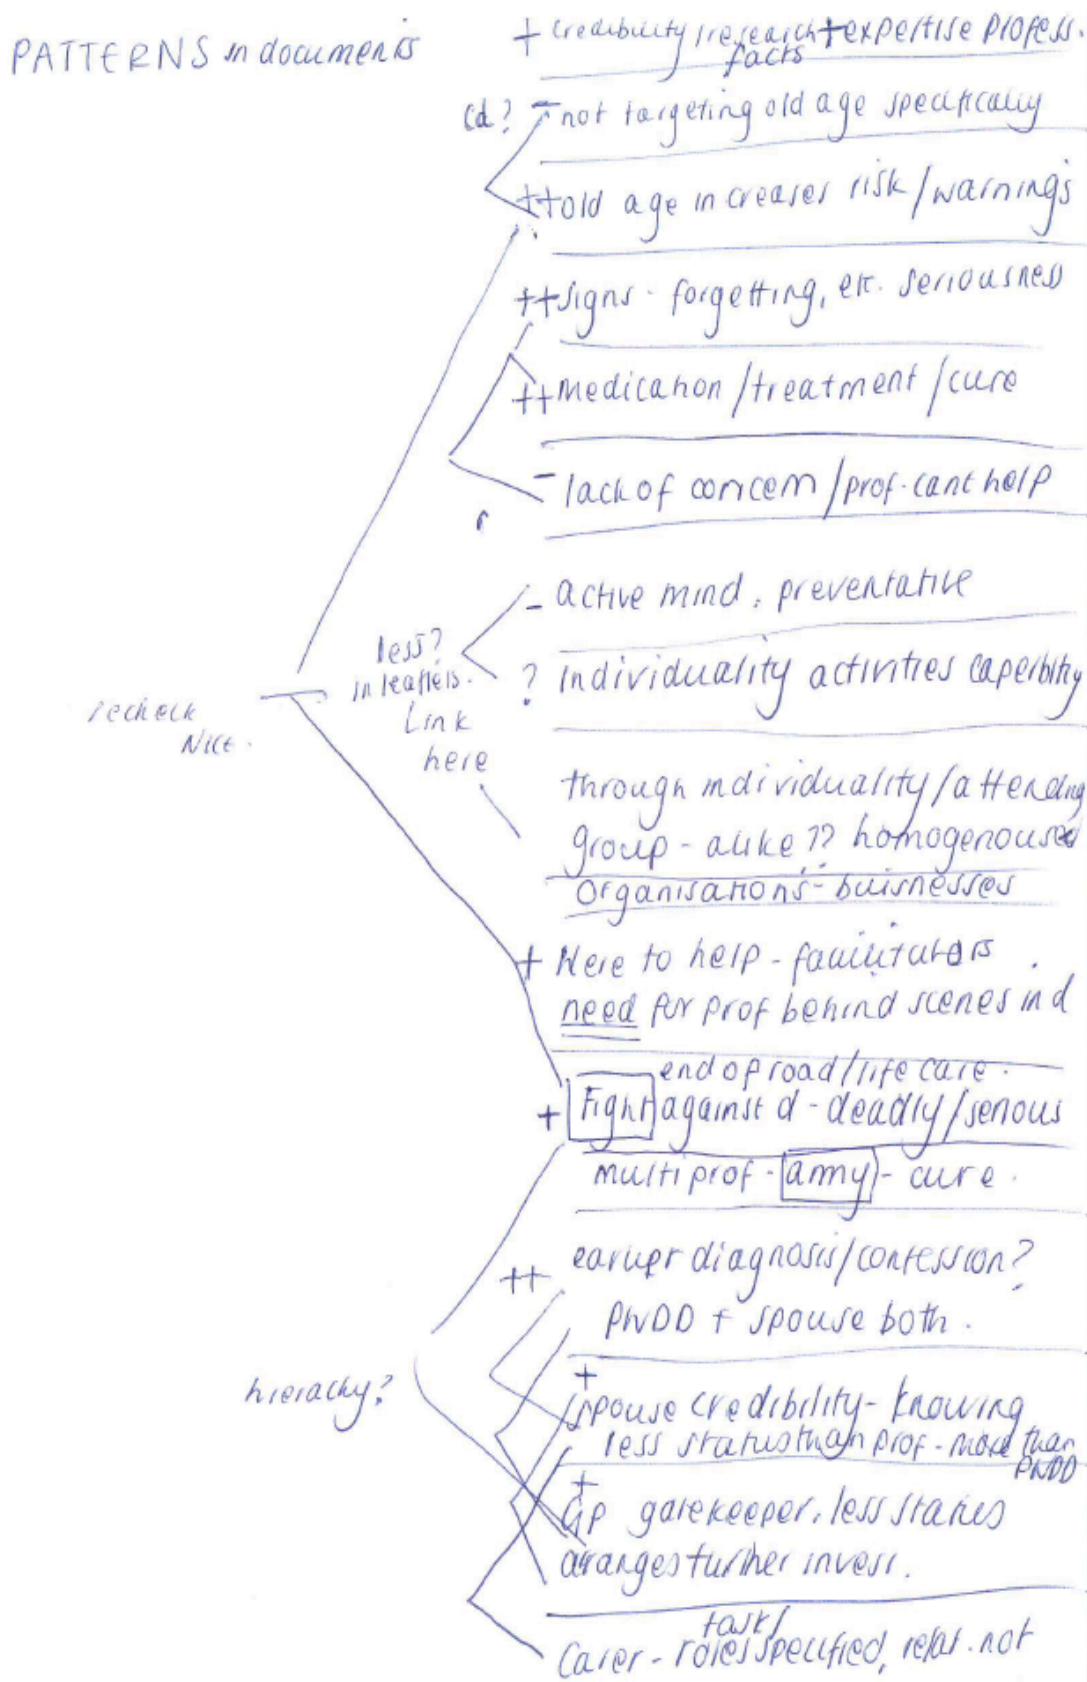 PATTERNS in documents
+ credibility/research + expertise profess.
facts
cd? - not targeting old age specifically
++ old age increases risk/warnings
++ signs - forgetting, etc. seriousness
++ medication/treatment/cure
- lack of concern/prof. cant help
r
- active mind, preventative
less?
in leaflets.
? individuality activities caperbility
Link
here
recheck
Nice.
through individuality/attending
group - alike ?? homogenoused
organisations - buisnesses
+ Here to help - facilitators
need for prof behind scenes in d
end of road/life care.
+ Fight against d - deadly/serious
multi prof - army - cure.
++ earlier diagnosis/confession?
PWDD + spouse both.
hierachy?
+ spouse credibility - knowing
less status than prof - more than
PWDD
+ GP gatekeeper, less status
aranges further invest.
task/
Carer - roles specified, relat. not